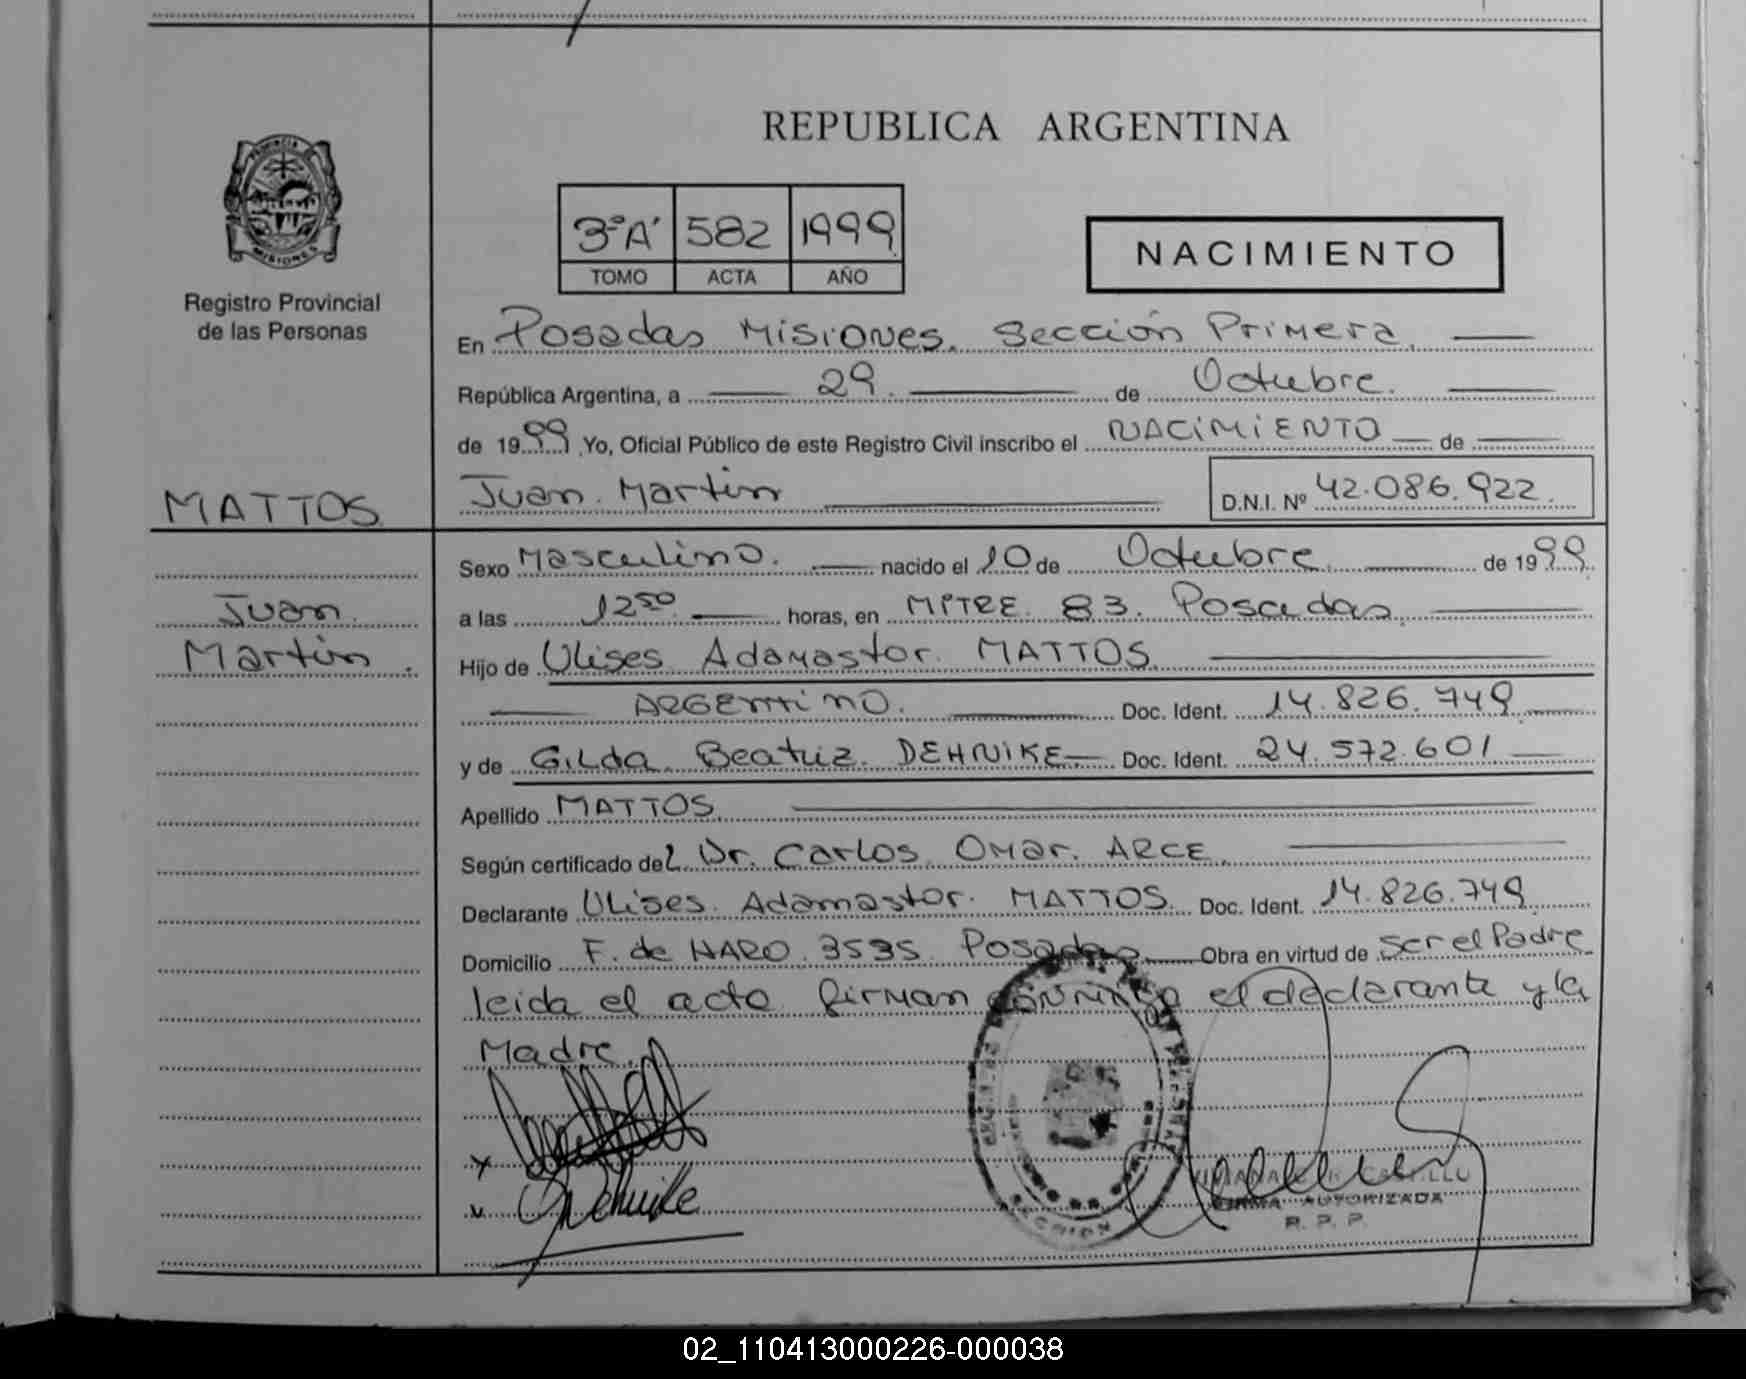 REPUBLICA ARGENTINA
PROVINCIA DE
MISIONES
Registro Provincial
de las Personas
3º"A" 582 1999
TOMO ACTA AÑO
NACIMIENTO
En Posadas Misiones. Sección Primera.
República Argentina, a 29. de Octubre.
de 1999 Yo, Oficial Público de este Registro Civil inscribo el NACIMIENTO de
MATTOS
Juan Martin
D.N.I. Nº 42.086.922.
Sexo Masculino. nacido el 10 de Octubre. de 1999.
Juan.
Martin.
a las 12⁵⁰ horas, en MITRE. 83. Posadas.
Hijo de Ulises Adamastor. MATTOS.
ARGENTINO. Doc. Ident. 14.826.749
y de Gilda Beatriz. DEHNIKE Doc. Ident. 24.572.601
Apellido MATTOS.
Según certificado del Dr. Carlos Omar. ARCE.
Declarante Ulises. Adamastor. MATTOS. Doc. Ident. 14.826.749
Domicilio F. de HARO. 3535 Posadas Obra en virtud de ser el Padre
leida el acta firman conmigo el declarante y la
Madre.
x
Dehnike
FIRMA AUTORIZADA
R. P. P.
02_110413000226-000038